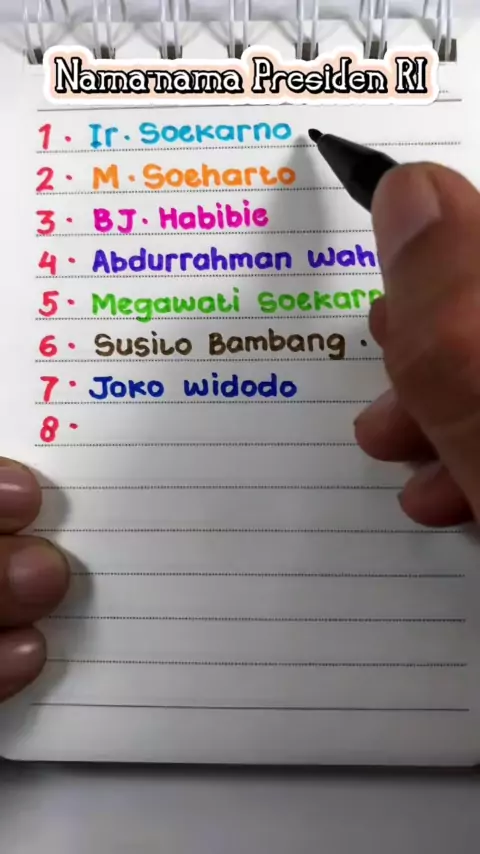 Nama-nama Presiden RI
1. Ir. Soekarno
2. M. Soeharto
3. BJ. Habibie
4. Abdurrahman Wah
5. Megawati Soekarn
6. Susilo Bambang.
7. Joko Widodo
8.